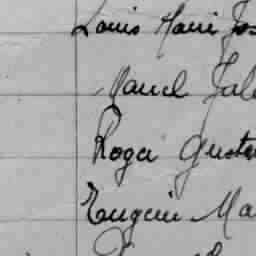 Louis Marie Jos
Marcel Jul
Roger Gusta
Eugène Ma